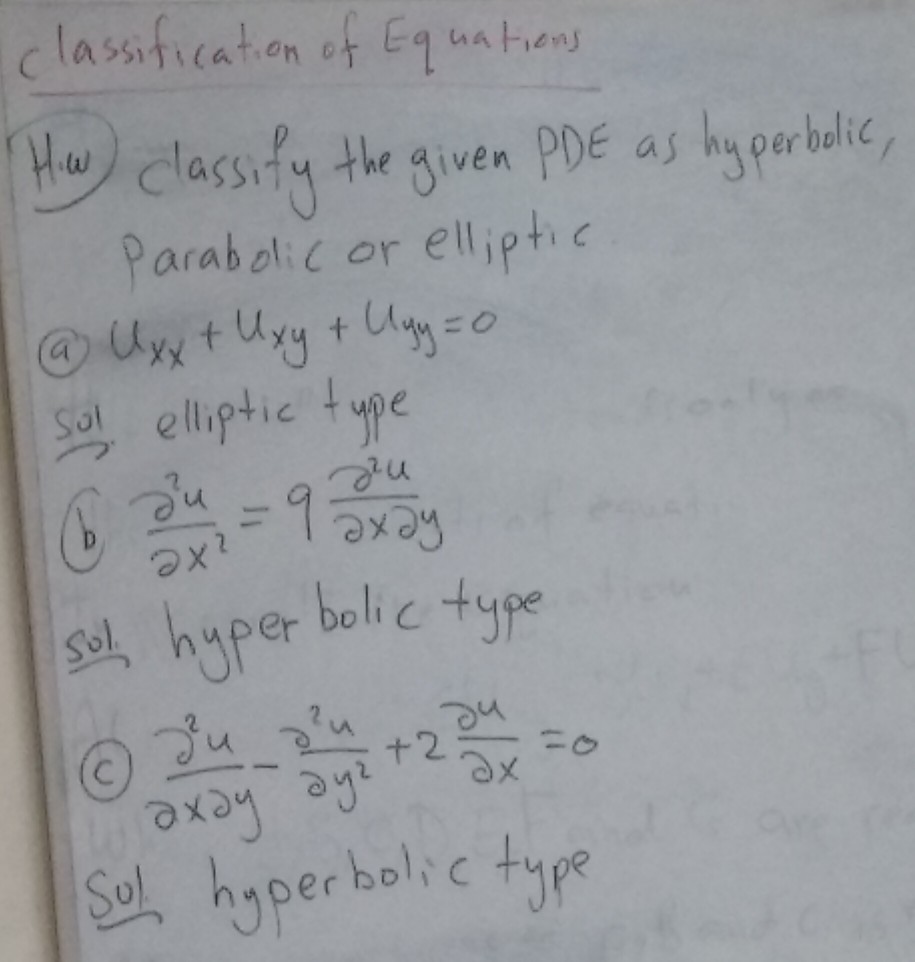 Classification of Equations
H.w classify the given PDE as hyperbolic,
Parabolic or elliptic
(a) Uxx + Uxy + Uyy = 0
Sol. elliptic type
(b) ∂²u/∂x² = 9 ∂²u/∂x∂y
Sol. hyperbolic type
(c) ∂²u/∂x∂y - ∂²u/∂y² + 2 ∂u/∂x = 0
Sol. hyperbolic type